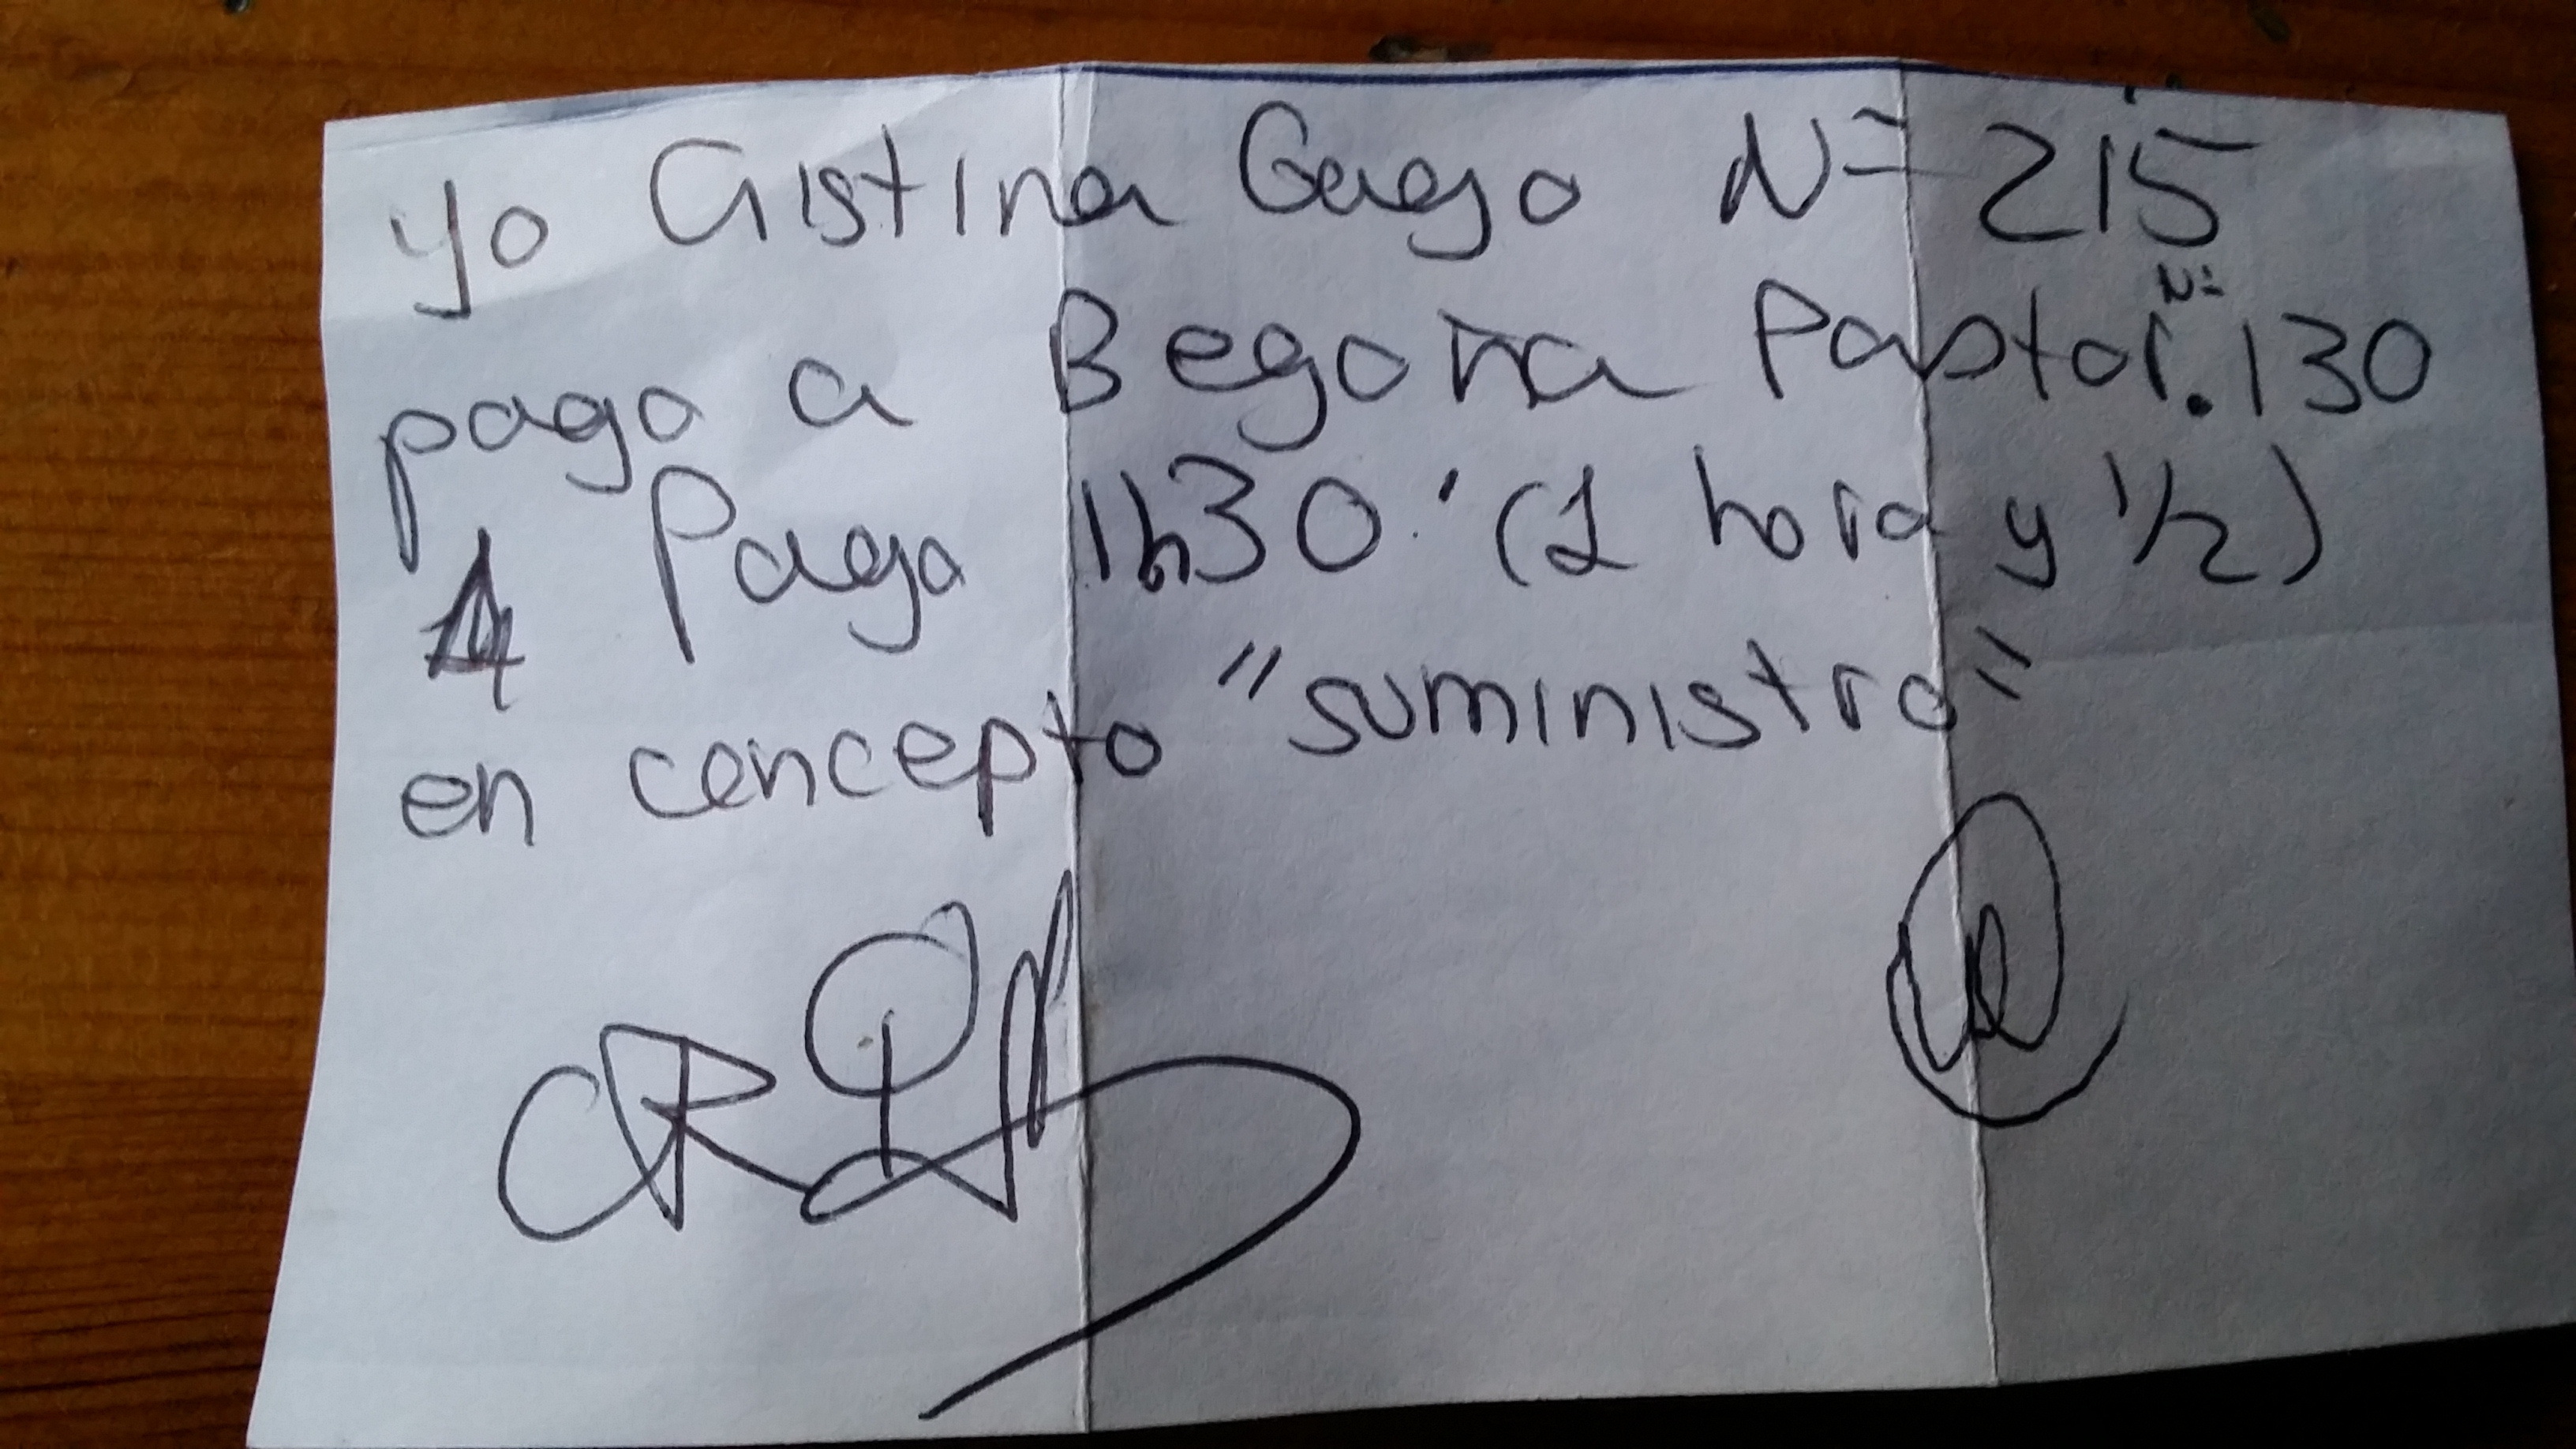 yo Cristina Gago Nº 215
pago a Begoña Pastor. Nº 130
Paga 1h30' (1 hora y 1/2)
en concepto "suministro"